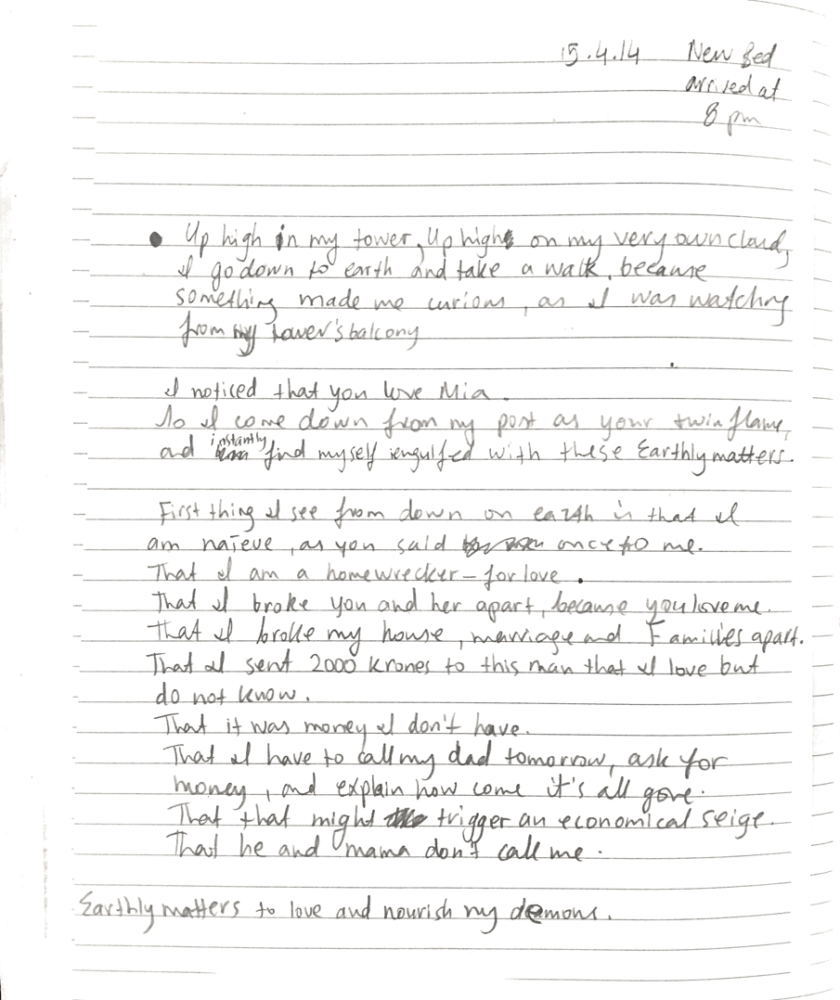 15.4.14 New Bed
arrived at
8 pm
• Up high in my tower, Up high on my very own cloud,
I go down to earth and take a walk, because
something made me curious, as I was watching
from my tower's balcony
I noticed that you love Mia.
So I come down from my post as your twin flame,
and instantly find myself engulfed with these Earthly matters.
First thing I see from down on earth is that I
am naieve, as you said once to me.
That I am a homewrecker – for love.
That I broke you and her apart, because you love me.
That I broke my house, marriage and Families apart.
That I sent 2000 krones to this man that I love but
do not know.
That it was money I don't have.
That I have to call my dad tomorrow, ask for
money, and explain how come it's all gone.
That that might trigger an economical seige.
That he and mama don't call me.
Earthly matters to love and nourish my demons.